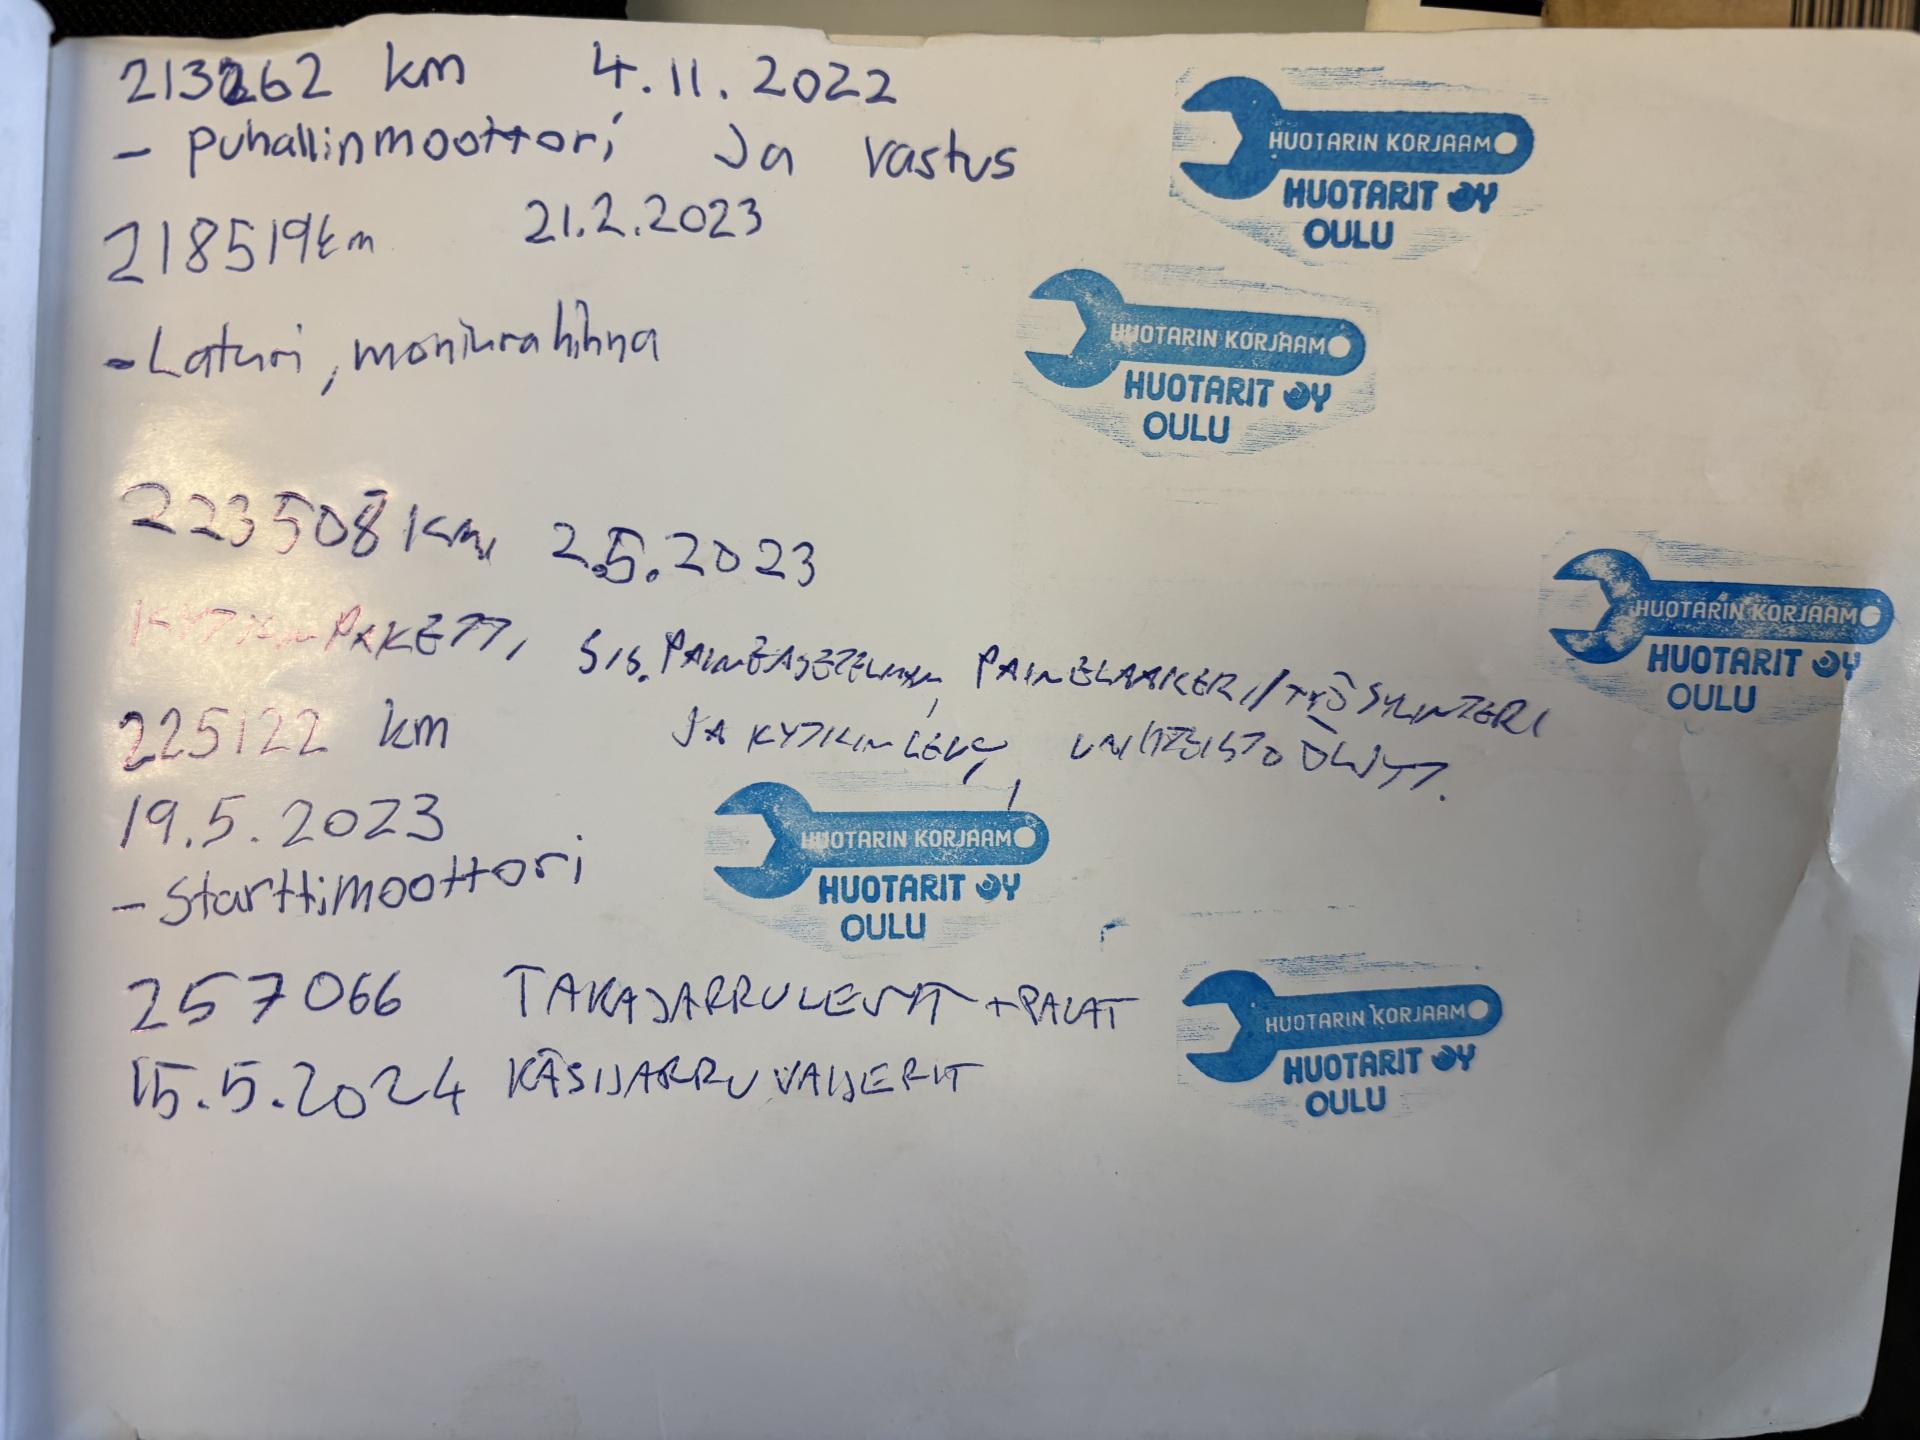 213262 km 4.11.2022
- puhallinmoottori ja vastus
HUOTARIN KORJAAMO
HUOTARIT OY
OULU
218519km 21.2.2023
- Laturi, moniurahihna
HUOTARIN KORJAAMO
HUOTARIT OY
OULU
223508 km 2.5.2023
KYTKINPAKETTI, SIS. PAINEASETELMAN, PAINELAAKERI/TYÖSYLINTERI
JA KYTKINLEVY, ÖLJYT.
HUOTARIN KORJAAMO
HUOTARIT OY
OULU
225122 km
19.5.2023
- Starttimoottori
HUOTARIN KORJAAMO
HUOTARIT OY
OULU
257066 TAKAJARRULEVYT + PALAT
15.5.2024 KÄSIJARRUVAIJERIT
HUOTARIN KORJAAMO
HUOTARIT OY
OULU